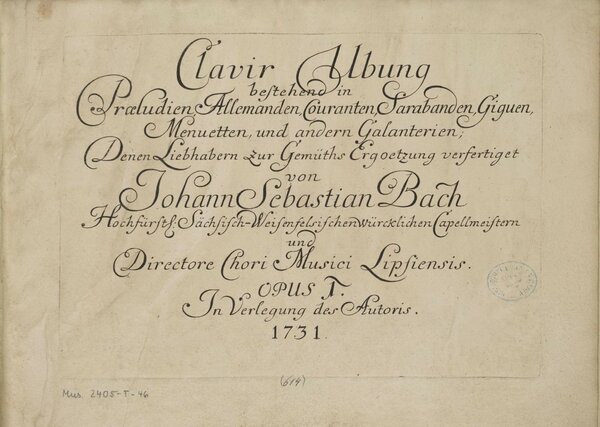 Clavir Ubung
bestehend in
Præludien, Allemanden, Couranten, Sarabanden, Giguen,
Menuetten, und andern Galanterien;
Denen Liebhabern zur Gemüths Ergoetzung verfertiget
von
Johann Sebastian Bach
Hochfürstl: Sächsisch-Weisenfelsischen würcklichen Capellmeistern
und
Directore Chori Musici Lipsiensis.
OPUS I.
In Verlegung des Autoris.
1731.
(619)
Mus. 2405-T-46